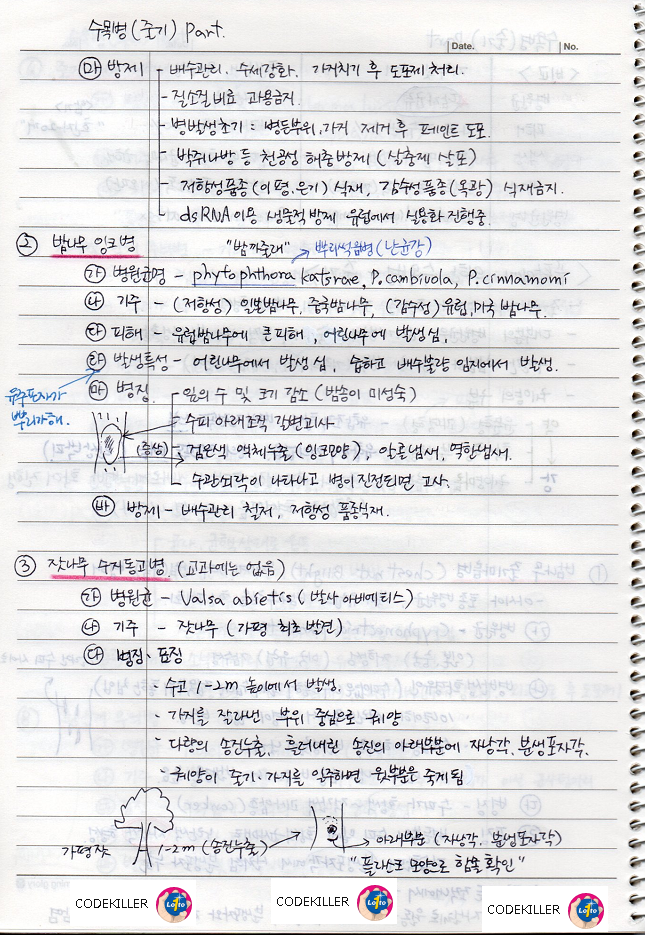 수목병(줄기) Part.
Date. No.
㉤ 방제 - 배수관리. 수세강화. 가지치기 후 도포제 처리.
- 질소질비료 과용금지.
- 병발생초기 : 병든부위, 가지 제거 후 페인트 도포.
- 박쥐나방 등 천공성 해충방제 (살충제 살포)
- 저항성품종(이평.은기) 식재, 감수성품종(옥광) 식재금지.
- dsRNA이용 생물적방제 유럽에서 실용화 진행중.
② 밤나무 잉크병 "밤까줄래" 뿌리썩음병(난균강)
㉮ 병원균명 - phytophthora katsrae, P.cambivola, P.cinnamomi
㉯ 기주 - (저항성) 일본밤나무, 중국밤나무, (감수성) 유럽, 미국 밤나무.
㉰ 피해 - 유럽밤나무에 큰피해, 어린나무에 발생심,
㉱ 발생특성 - 어린나무에서 발생심, 습하고 배수불량 임지에서 발생.
유주포자가
뿌리가해.
㉲ 병징 - 잎의 수 및 크기 감소 (밤송이 미성숙)
수피 아래조직 갈변괴사
(증상) - 검은색 액체누출 (잉크모양) - 알콜냄새, 역한냄새.
수관쇠락이 나타나고 병이진전되면 고사.
㉳ 방제 - 배수관리 철저, 저항성 품종식재.
③ 잣나무 수지동고병. (교과에는 없음)
㉮ 병원균 - Valsa abietis (발사 아비에티스)
㉯ 기주 - 잣나무 (가평 최초발견)
㉰ 병징·표징
- 수고 1-2m 높이에서 발생.
- 가지를 잘라낸 부위 중심으로 궤양
- 다량의 송진누출, 흘러내린 송진의 아래부분에 자낭각. 분생포자각.
- 궤양이 줄기·가지를 일주하면 윗부분은 죽게됨
가평잣 1-2m (송진누출) 아래부분 (자낭각. 분생포자각)
"플라스크 모양으로 함몰 확인"
CODEKILLER Lotto
CODEKILLER Lotto
CODEKILLER Lotto